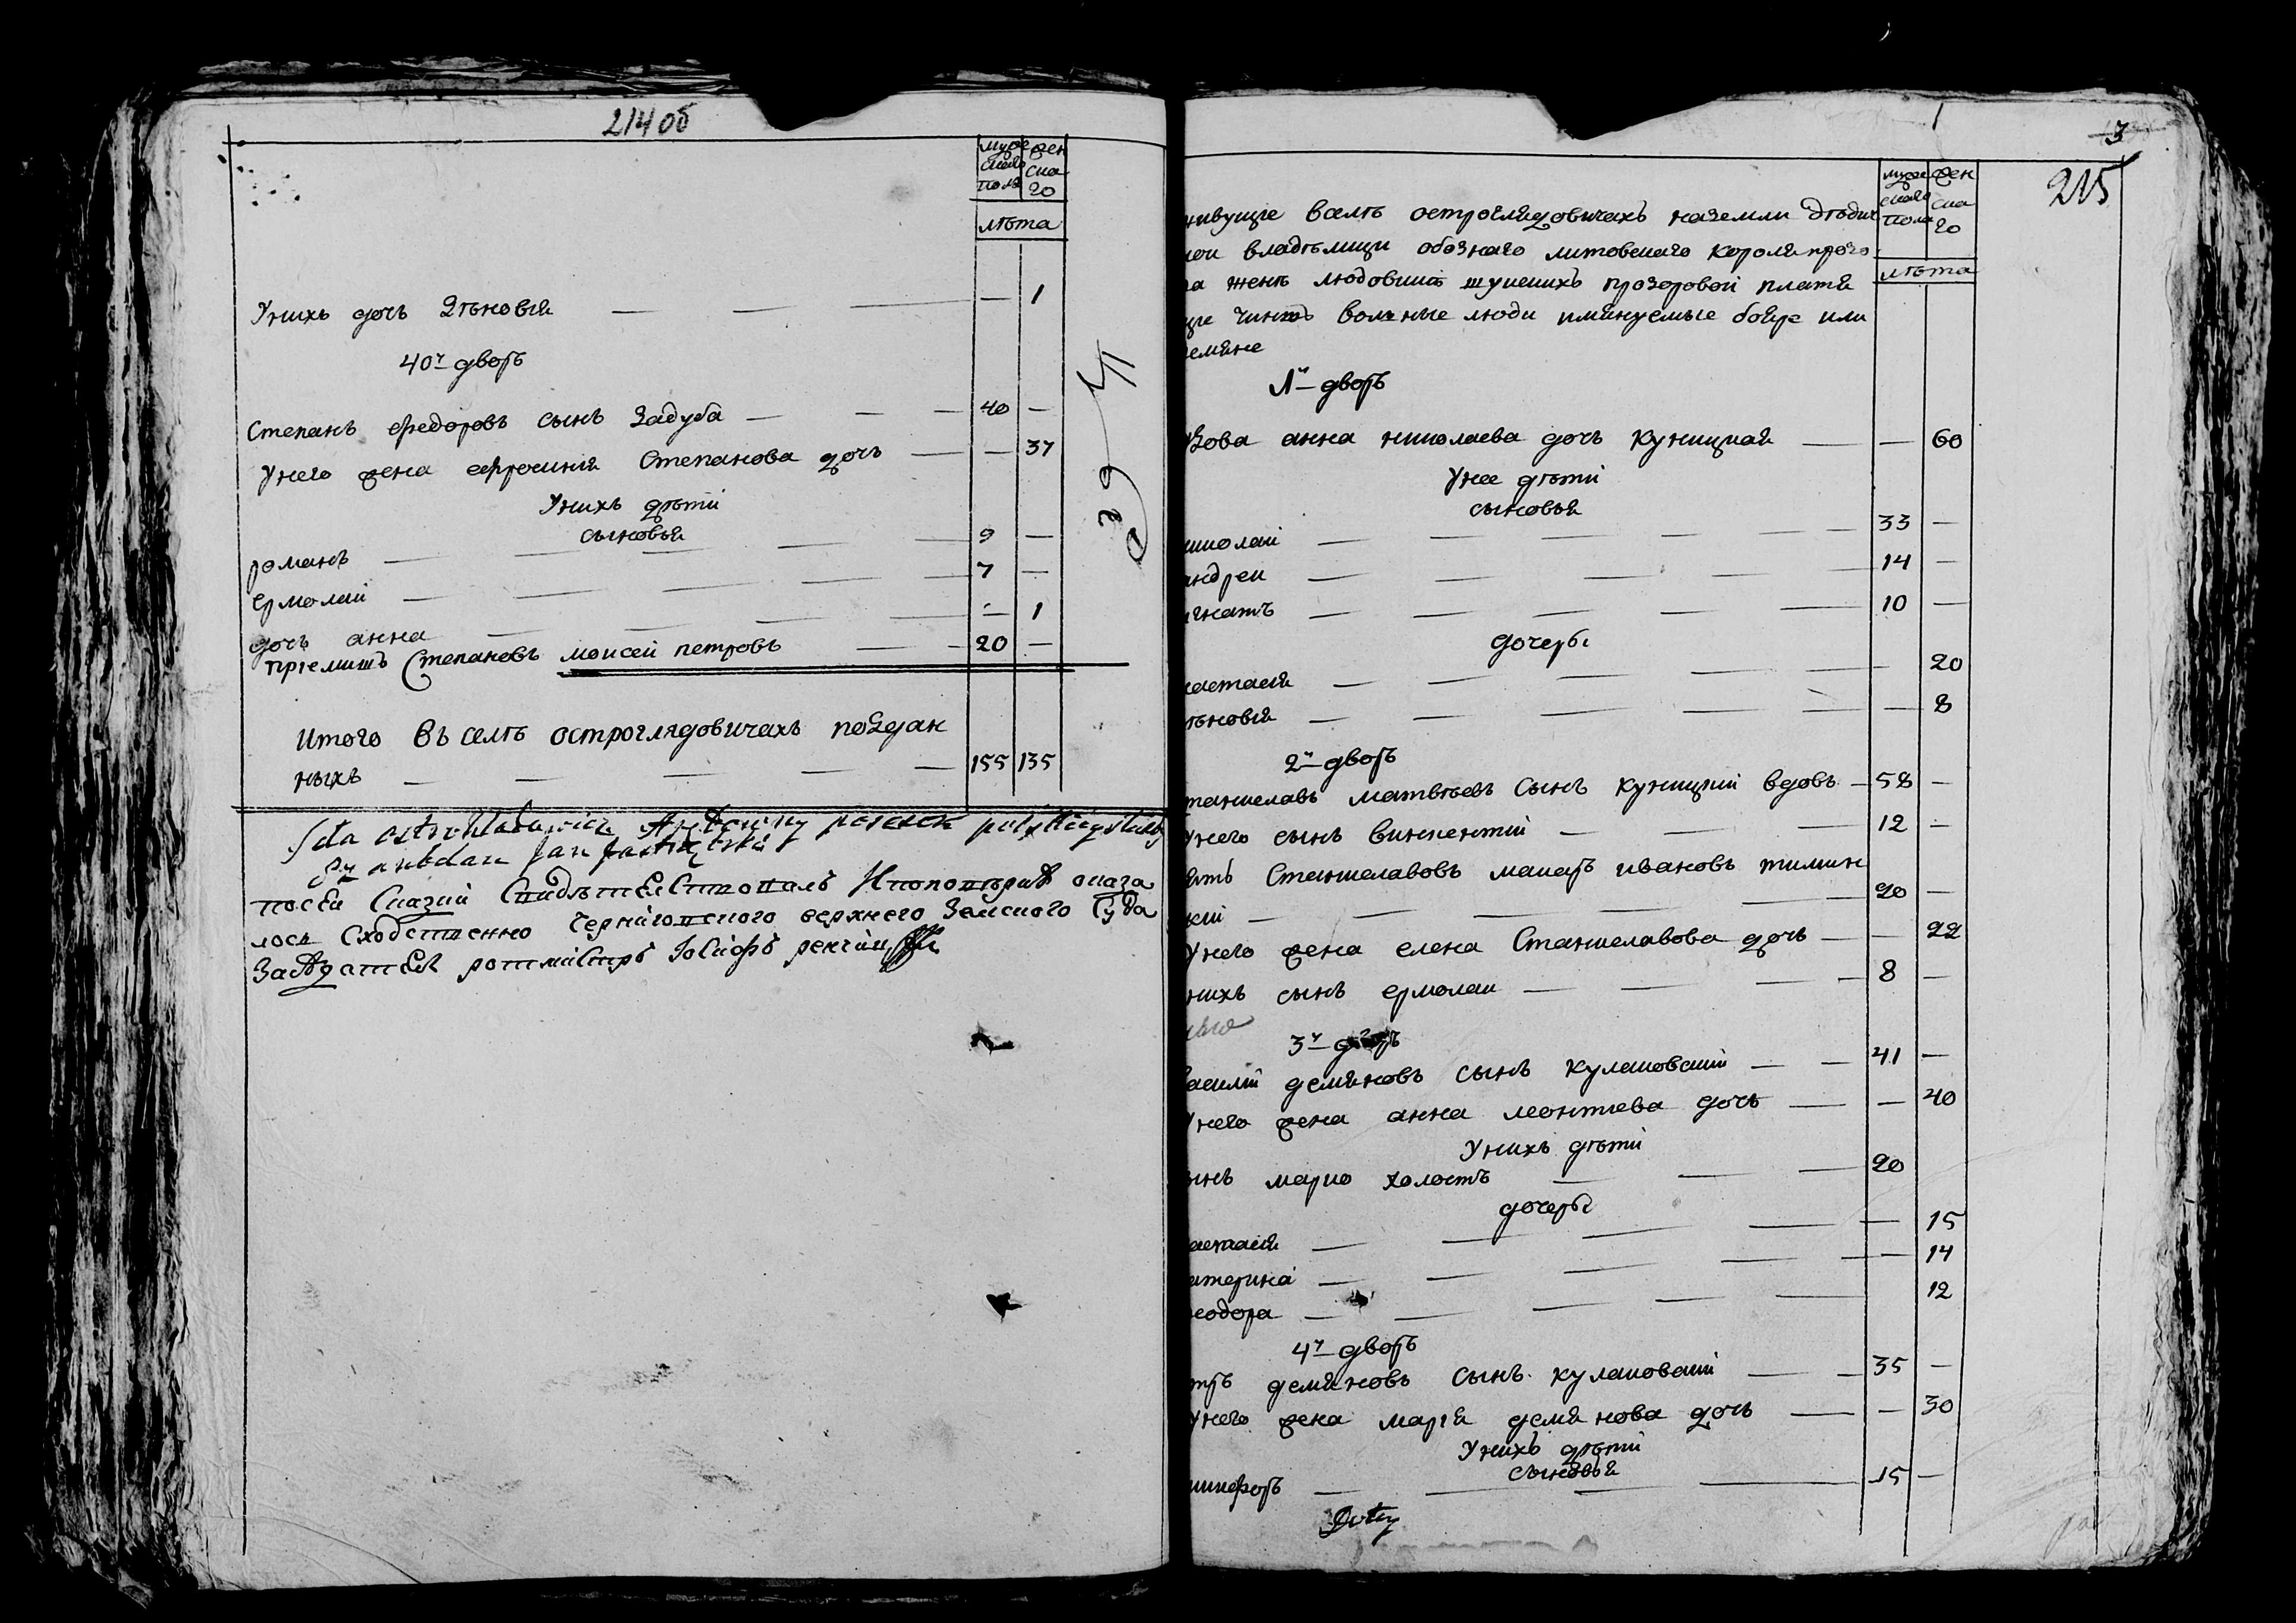 214 об
мужескаго пола
женскаго
лѣта
У нихъ дочь Зѣновія — 1
40й дворъ
Степанъ Федоровъ сынъ Задуба 40 —
У него жена Ефросинія Степанова дочь — 37
У нихъ дѣти
сыновья
романъ 9 —
ермолай 7 —
дочь анна — 1
приемышъ Степановъ моисей петровъ 20 —
Итого въ селѣ остроглядовичахъ поддан
ныхъ 155 135
лось Сходственно Чернiговского верхнего Земского Суда
Заседателъ ротмистръ
3
215
мужескаго пола
женскаго
лѣта
живущіе в селѣ остроглядовичахъ на земли дѣдич
ной владѣлици обознаго литовскаго Кароля прозо
ра женѣ людовики шуйскихъ прозоровой платя
щіе чиншъ вольные люди имянуемые бояре или
земяне
1й дворъ
вдова анна николаева дочь куницкая — 60
У нее дѣти
сыновья
николай 33 —
андрей 14 —
игнатъ 10 —
дочери
настасія — 20
зѣновія — 8
2й дворъ
станиславъ матвѣевъ сынъ куницкий вдовъ 58 —
У него сынъ викентий 12 —
зять Станиславовъ макаръ ивановъ тимин
кий 20 —
У него жена елена Станиславова дочь — 22
у нихъ сынъ ермолай 8 —
3й дворъ
василий демяновъ сынъ кулаковский 41 —
У него жена анна леонтиева дочь — 40
У нихъ дѣти
сынъ марко холостъ 20
дочери
настасія — 15
катерина — 14
феодора 12
4й дворъ
петръ демяновъ сынъ кулаковский 35 —
У него жена марія демянова дочь — 30
У нихъ дѣти
сыновья
никифоръ 15 —